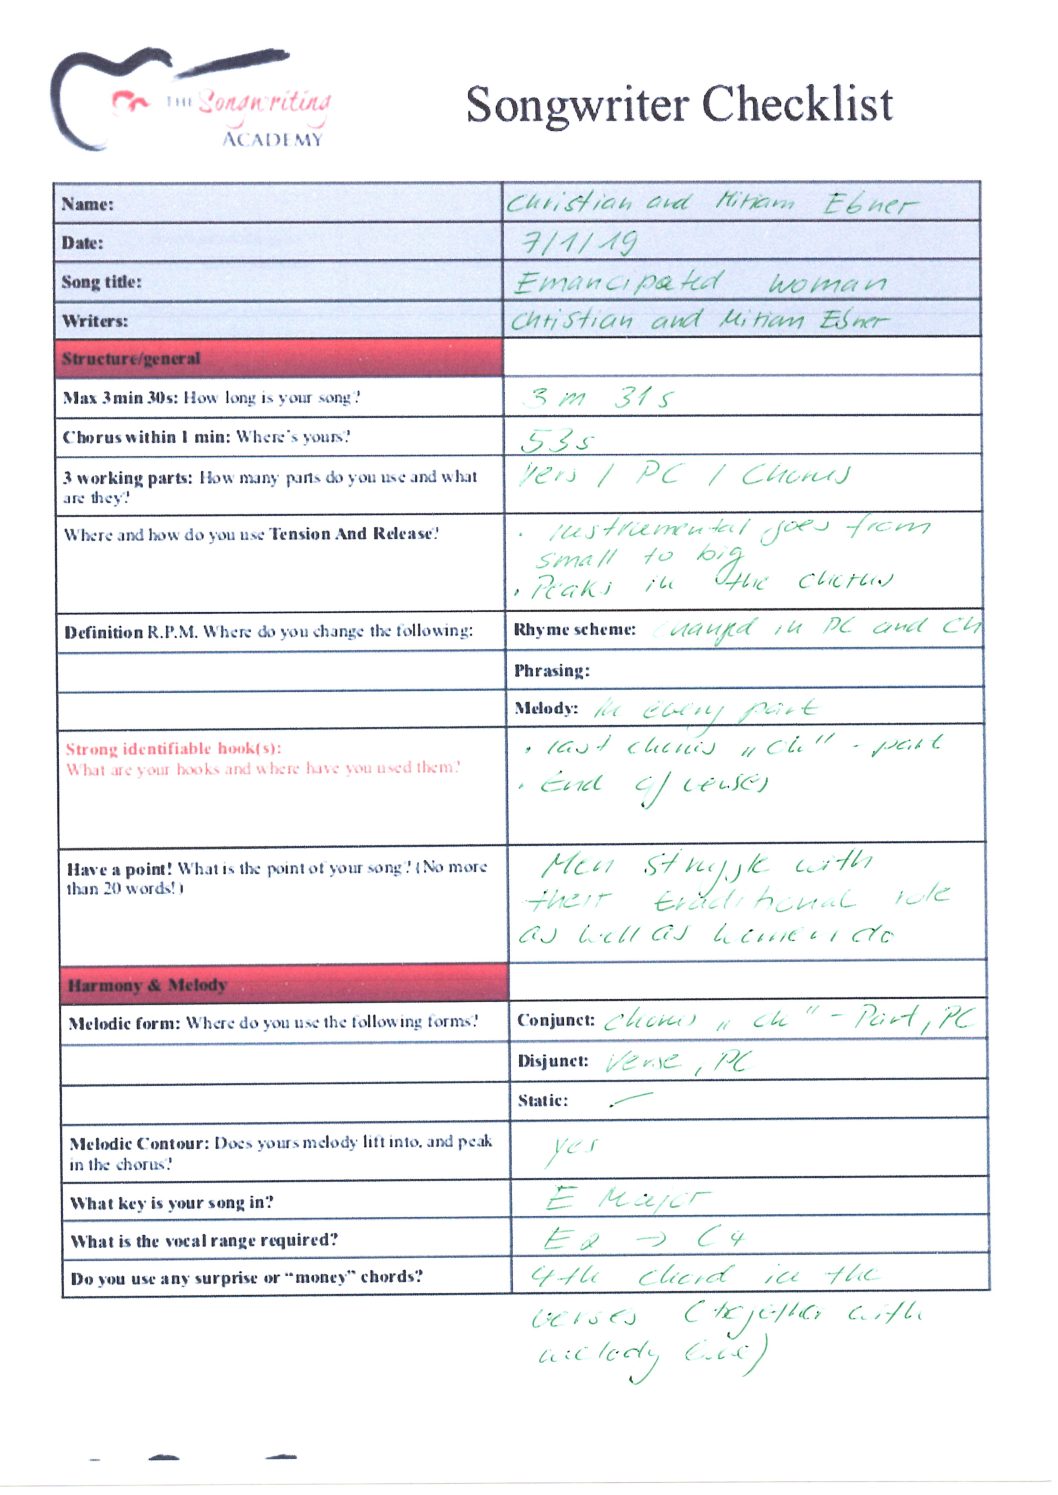 THE Songwriting
ACADEMY
Songwriter Checklist
Name: Christian and Miriam Ebner
Date: 7/1/19
Song title: Emancipated woman
Writers: Christian and Miriam Ebner
Structure/general
Max 3min 30s: How long is your song? 3 m 31s
Chorus within 1 min: Where's yours? 53s
3 working parts: How many parts do you use and what
are they?
Vers / PC / Chorus
Where and how do you use Tension And Release?
· Instrumental goes from
small to big
· Peaks in the chorus
Definition R.P.M. Where do you change the following: Rhyme scheme: changed in PC and CH
Phrasing:
Melody: In every part
Strong identifiable hook(s):
What are your hooks and where have you used them?
· last chorus „ch" - part
· End of verses
Have a point! What is the point of your song? (No more
than 20 words!)
Men struggle with
their traditional role
as well as women do
Harmony & Melody
Melodic form: Where do you use the following forms? Conjunct: Chorus „ch" - Part, PC
Disjunct: Verse, PC
Static: -
Melodic Contour: Does yours melody lift into, and peak
in the chorus?
yes
What key is your song in? E Major
What is the vocal range required? E2 → C4
Do you use any surprise or “money” chords? 4th chord in the
verses (together with
melody line)